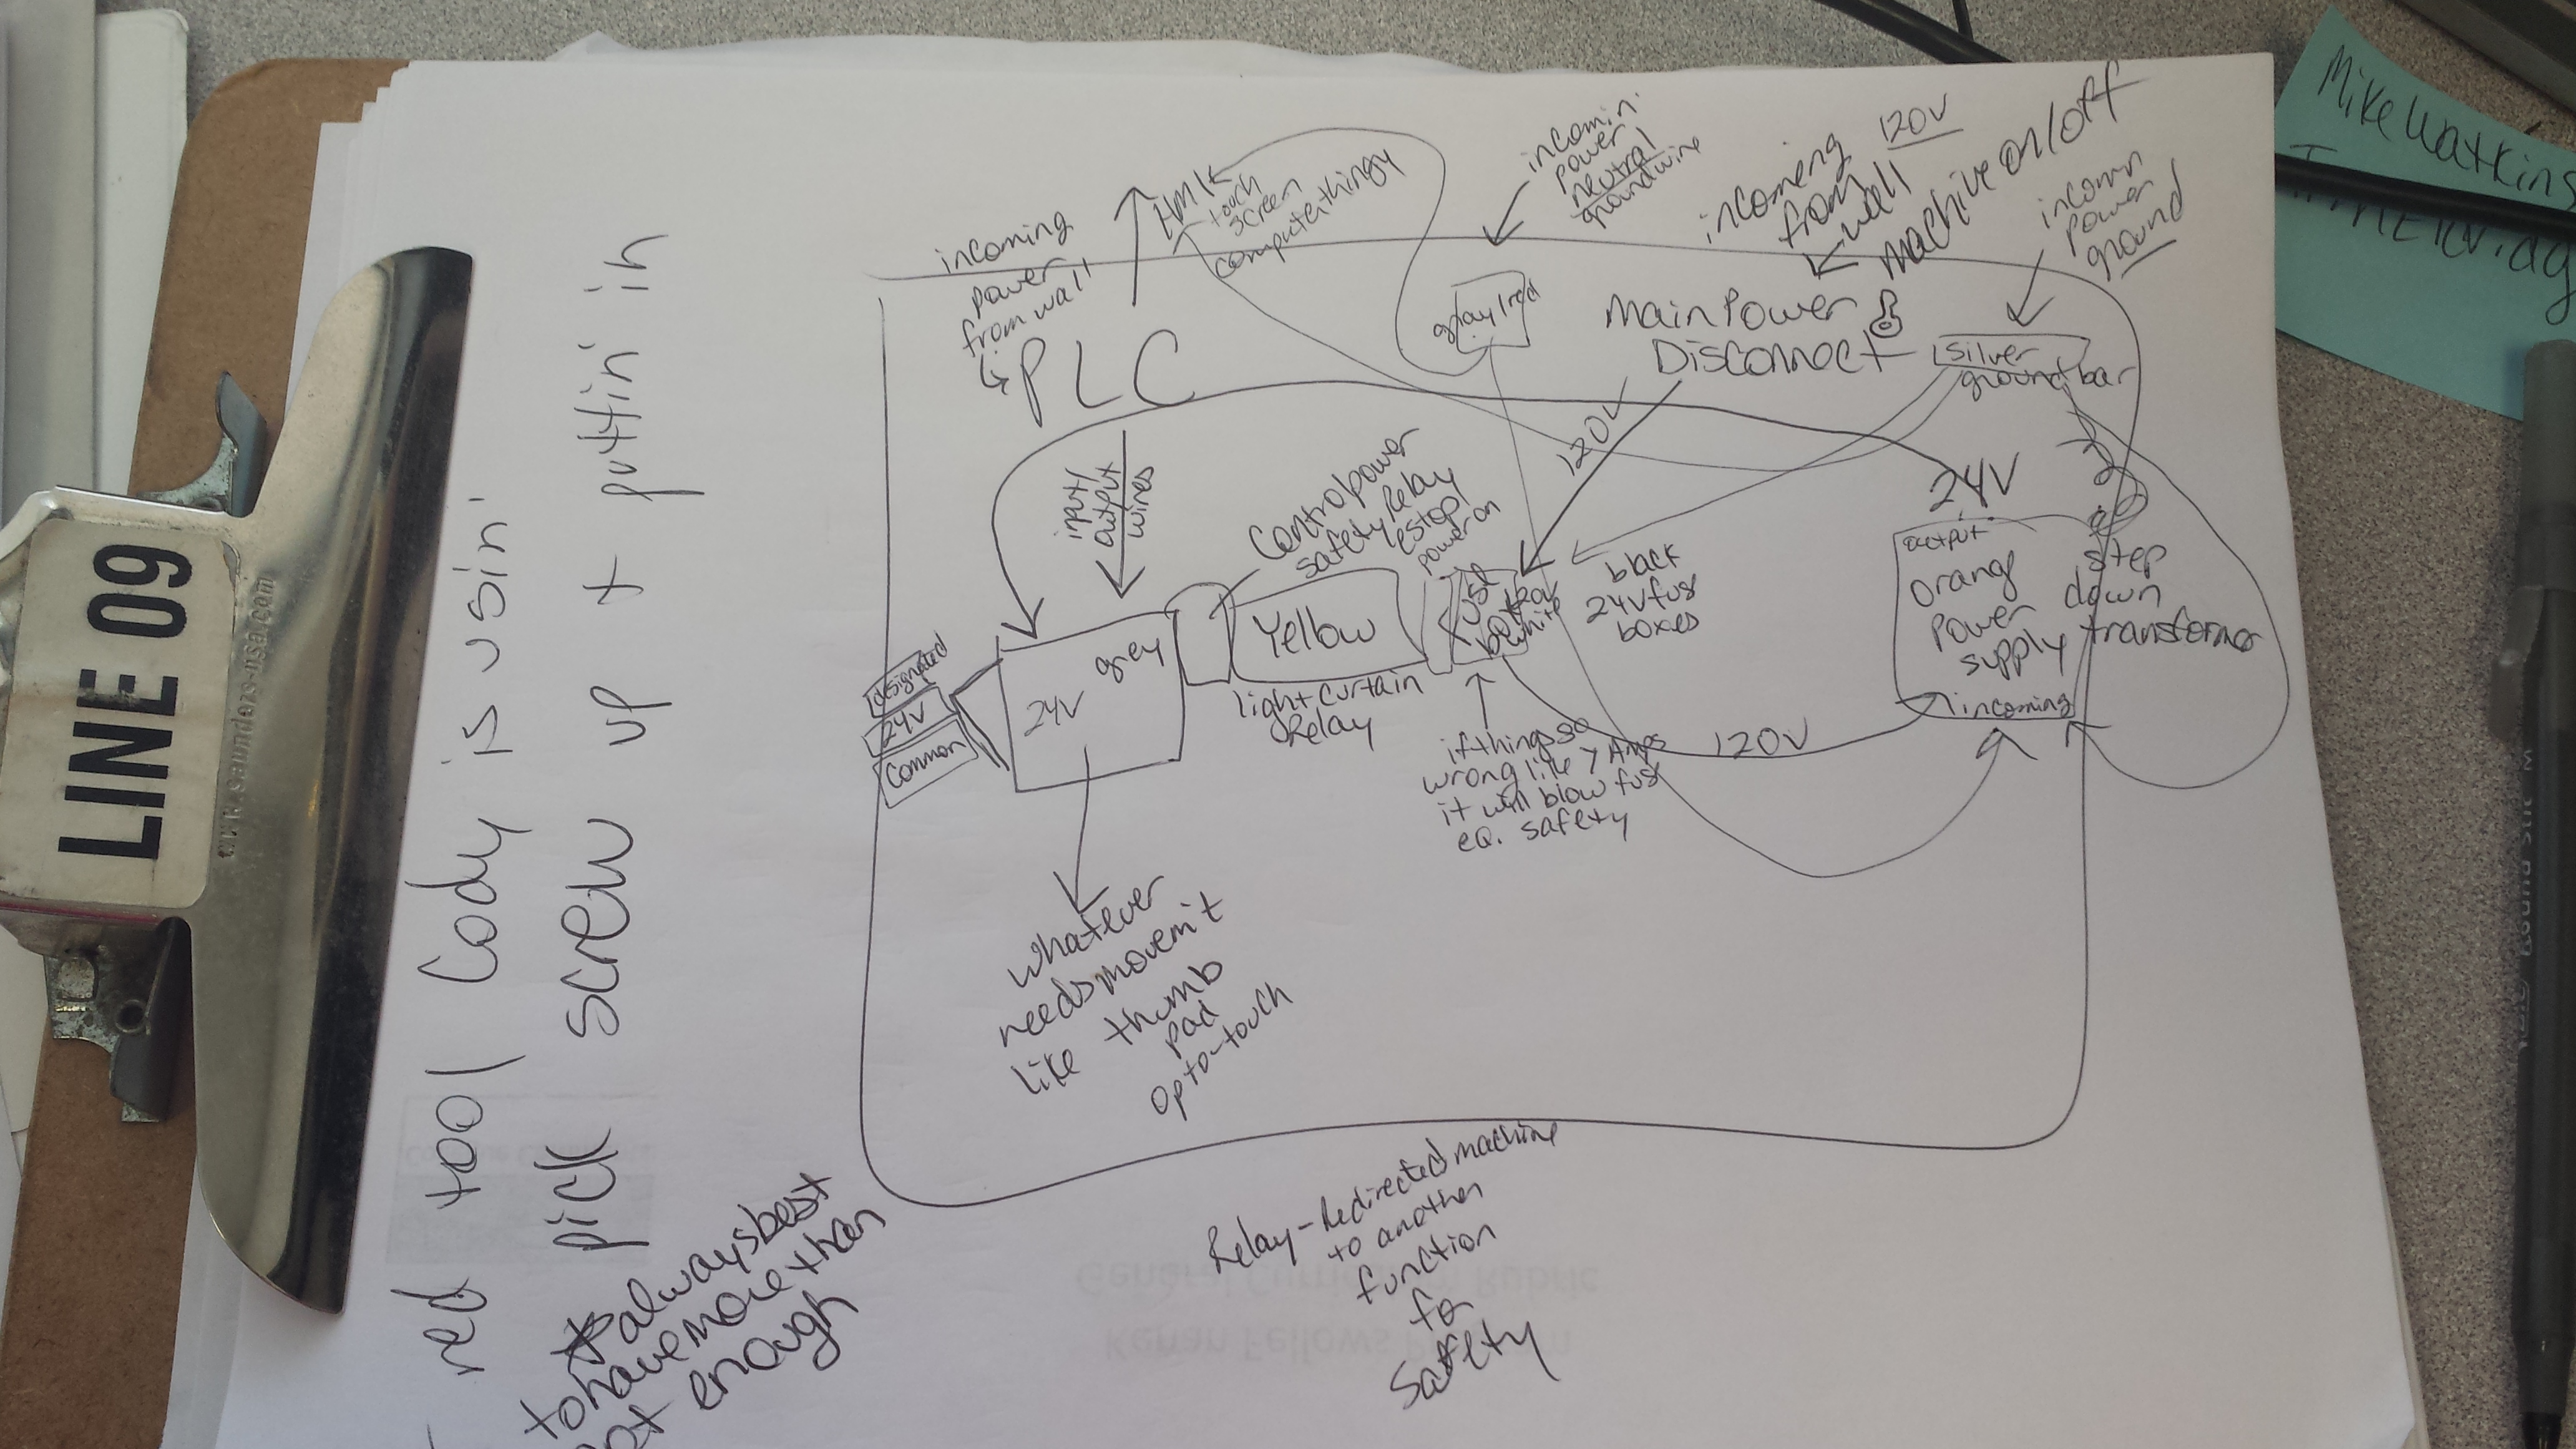 LINE 09
www.saunders-usa.com
Mike Watkins
red tool Cody is usin'
pick screw up + puttin' in
always best
to have more than
not enough
incoming
power
from wall
PLC
HMI
touch
screen
computer thingy
incomin'
power
neutral
ground wire
gray/red
incoming
from
wall
120V
machine on/off
Main Power
Disconnect
incomin
power
ground
silver
ground bar
120V
24V
output
Orange
Power
supply
incoming
step
down
transformer
input/
output
wires
Control power
safety relay
estop/
power on
Yellow
light curtain
Relay
120V
white
black
24V fus
boxes
if things go
wrong like 7 Amps
it will blow fus
eq. safety
120V
designated
24V
Common
grey
24V
whatever
needs movem't
like thumb
pad
opto-touch
Relay - Redirected machine
to another
function
for
Safety
General Curriculum Rubric
Kenan Fellows Program